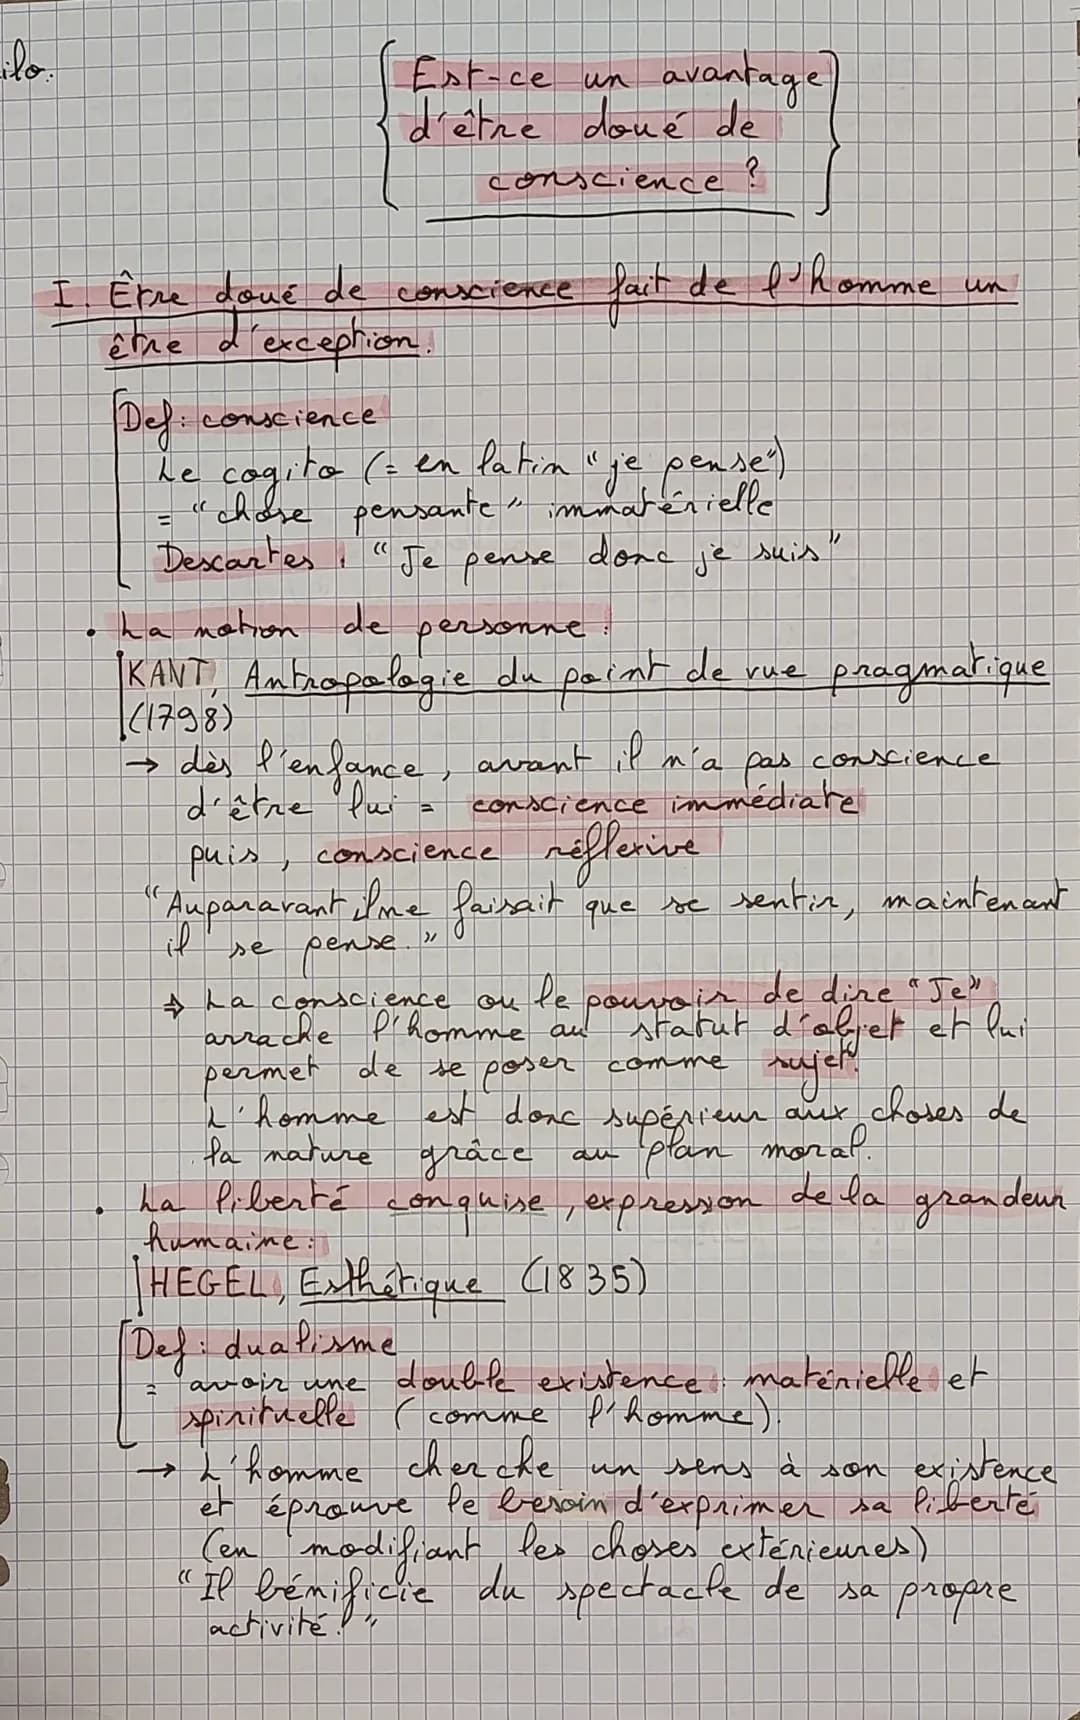 ilo.
Est-ce un avantage
d'être doué de
conscience ?
I. Être doué de conscience fait de l'homme un
être d'exception.
Def: conscience
Le cogito (= en latin "je pense")
= "chose pensante" immatérielle
Descartes : "Je pense donc je suis"
• La notion de personne :
KANT, Antropologie du point de vue pragmatique
(1798)
→ dès l'enfance, avant il n'a pas conscience
d'être lui = conscience immédiate
puis, conscience réflexive
"Auparavant il ne faisait que se sentir, maintenant
il se pense."
⇒ La conscience ou le pouvoir de dire "Je"
arrache l'homme au statut d'objet et lui
permet de se poser comme sujet.
L'homme est donc supérieur aux choses de
la nature grâce au plan moral.
• La liberté conquise, expression de la grandeur
humaine :
HEGEL, Esthétique (1835)
Def : dualisme
= avoir une double existence : matérielle et
spirituelle (comme l'homme).
→ L'homme cherche un sens à son existence
et éprouve le besoin d'exprimer sa liberté
(en modifiant les choses extérieures)
"Il bénificie du spectacle de sa propre
activité."